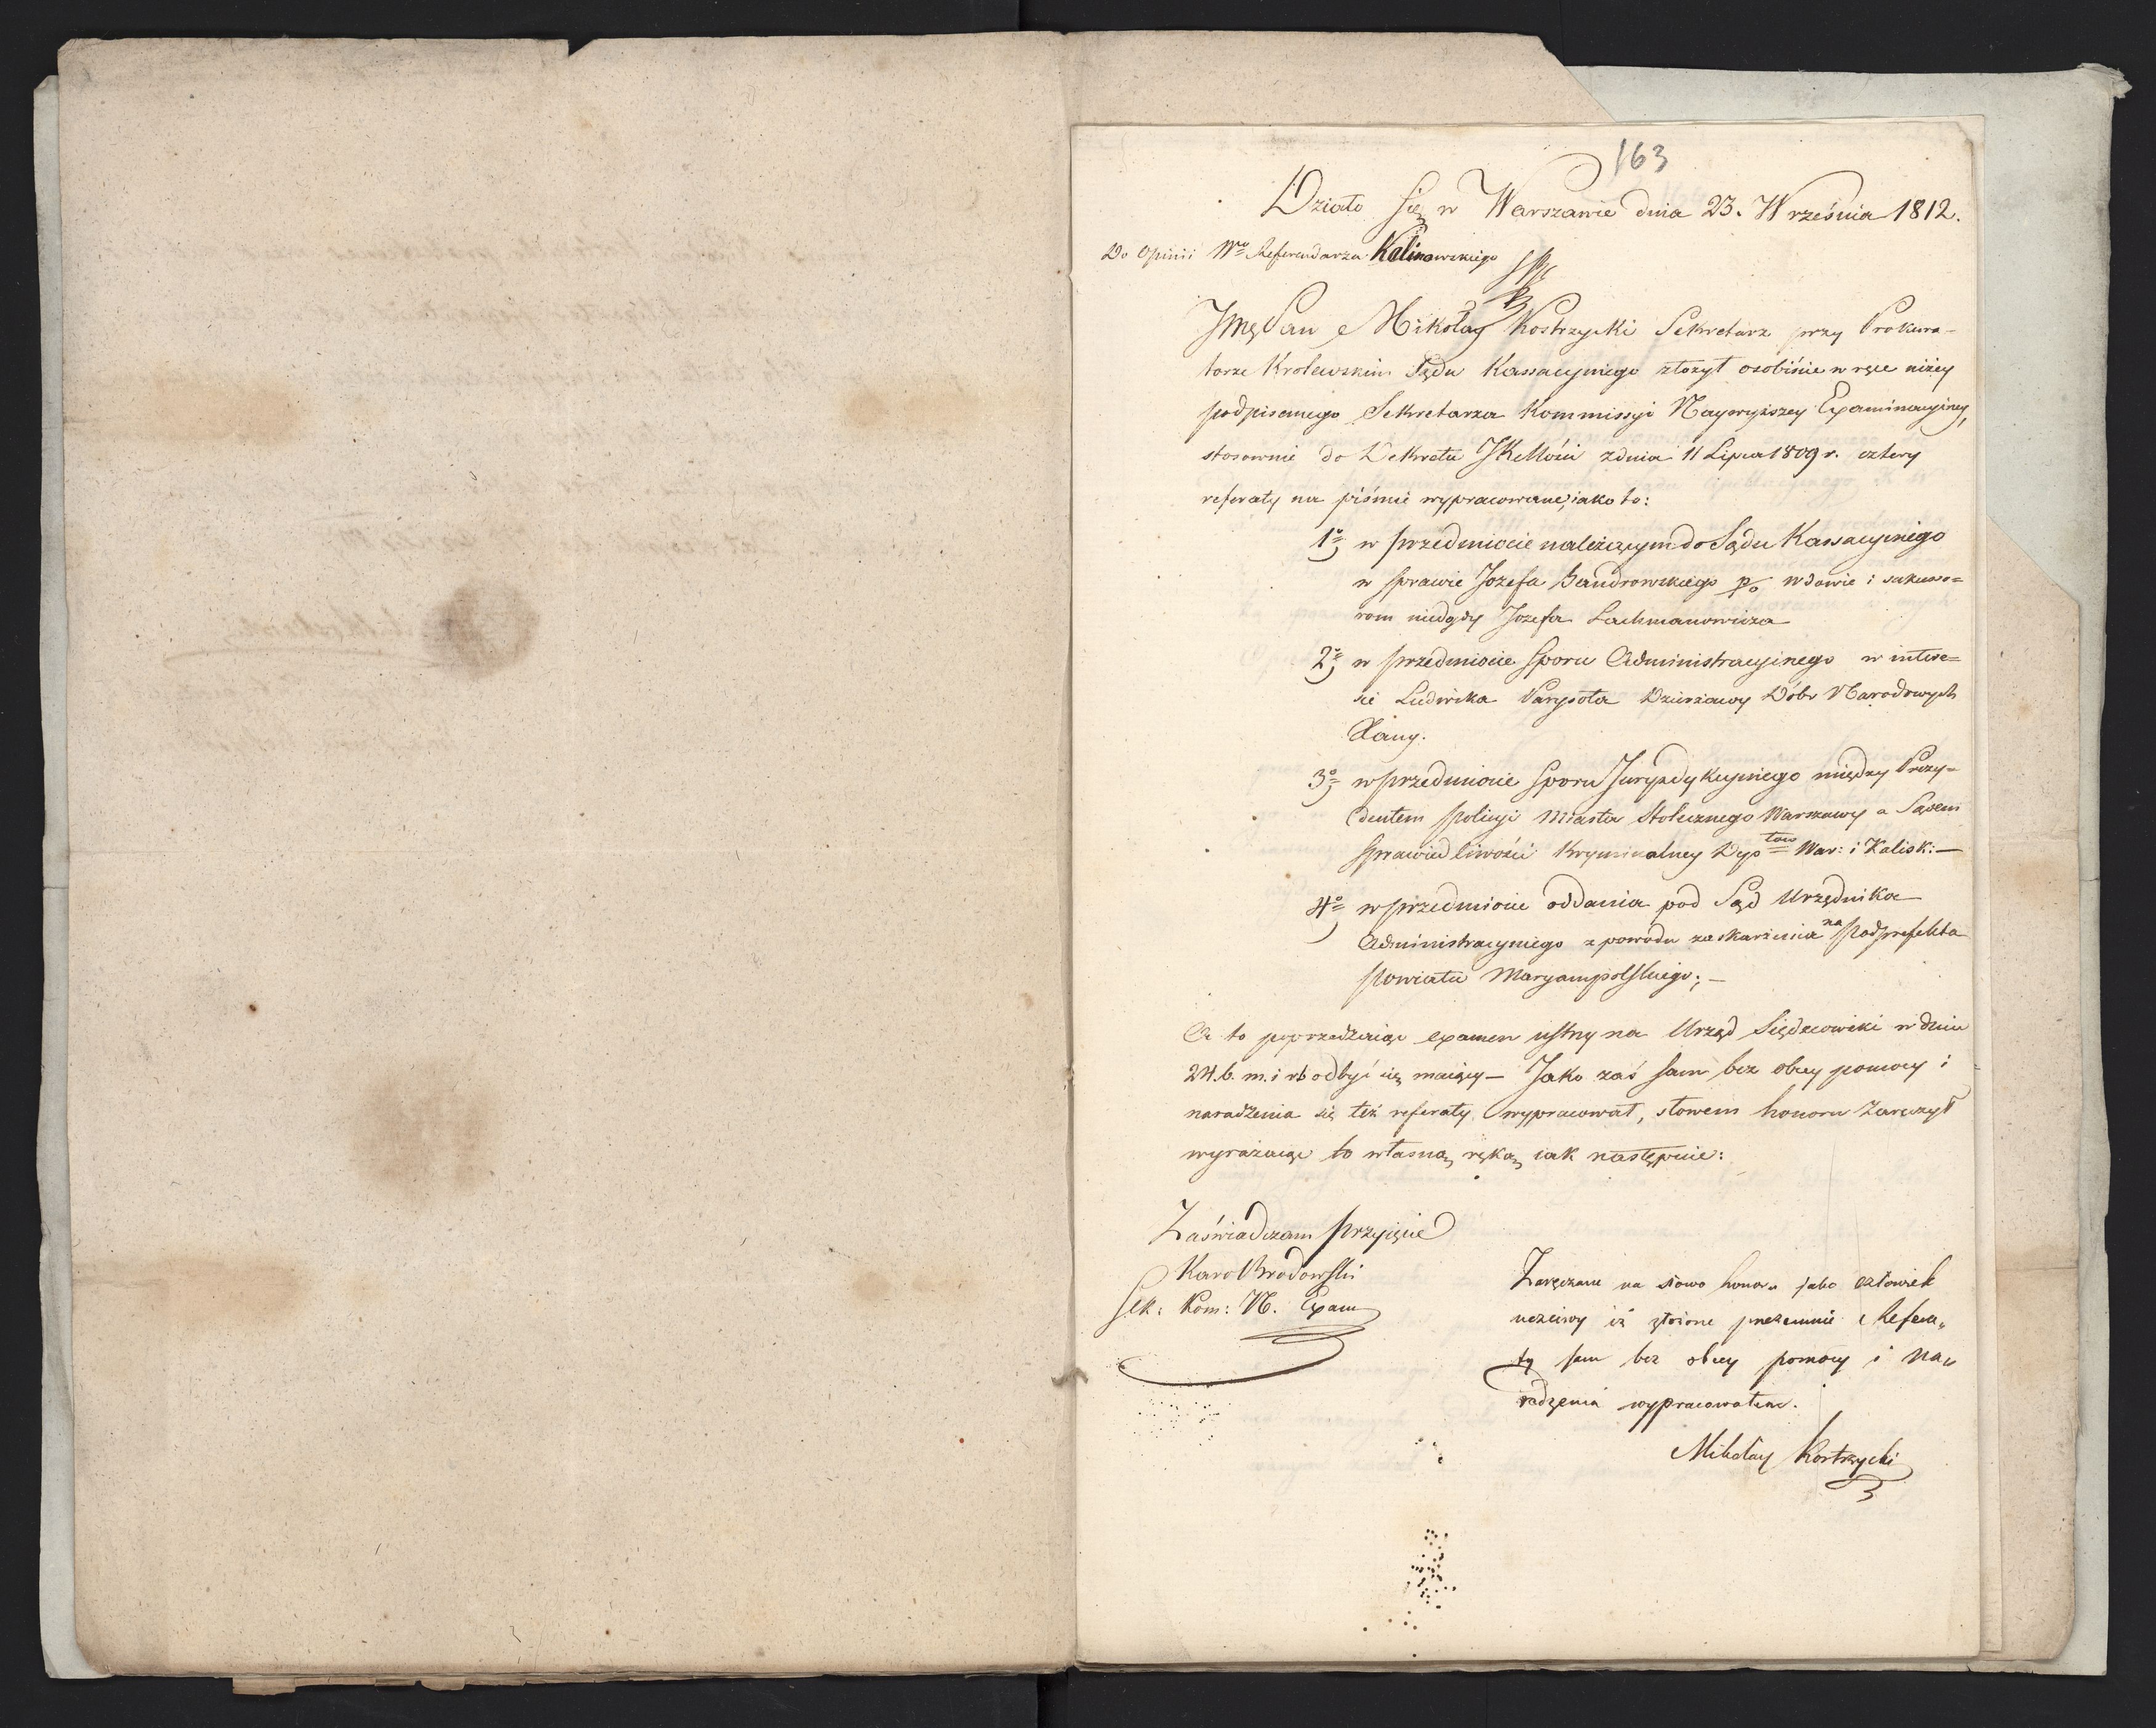 163
Działo Się w Warszawie dnia 23. Września 1812.
Do Opinii Wo Referendarza Kalinowskiego
JMę Pan Mikołay Kostrzycki Sekretarz przy Prokura-
torze Krolewskim Sądu Kassacyinego złożył osobiście w ręce niżey
podpisanego Sekretarza Kommissyi Naywyższey Examinacyiney,
stosownie do Dekretu JKMości z dnia 11 Lipca 1809 r. cztery
referaty na piśmie wypracowane, iako to:
1o w przedmiocie należącym do Sądu Kassacyinego
w sprawie Jozefa Bandrowskiego po wdowie i sukcesso=
rom niedgdy Jozefa Lachmanowicza
2o w przedmiocie Sporu Administracyinego w intere=
sie Ludwika Dzierżawy Dóbr Narodowych
3o w przedmiocie Sporu Jurysdykcyinego między Prezy=
dentem policyi Miasta Stołecznego Warszawy a Sądem
Sprawiedliwości Kryminalney Dyptow War: i Kalisk: —
4o w przedmiocie oddania pod Sąd Urzędnika
Administracyinego z powodu zaskarżenia na Podprefekta
Powiatu Maryampolskiego; —
A to poprzedzaiąc examen ustny na Urząd Sędziowski w dniu
24. b. m. i r. odbyć się maiący — Jako zaś sam bez obcey pomocy i
naradzenia się też referaty wypracował, słowem honoru zaręczył
wyrażaiąc to własną ręką iak następuie:
Zaświadczam przyięcie
Karol Brodowski
Sek: Kom: N. Exam
Zaręczam na słowo honoru jako człowiek
uczciwy iż złożone przezemnie Refera„
ty sam bez obcey pomocy i na„
radzenia wypracowałem.
Mikołay Kostrzycki